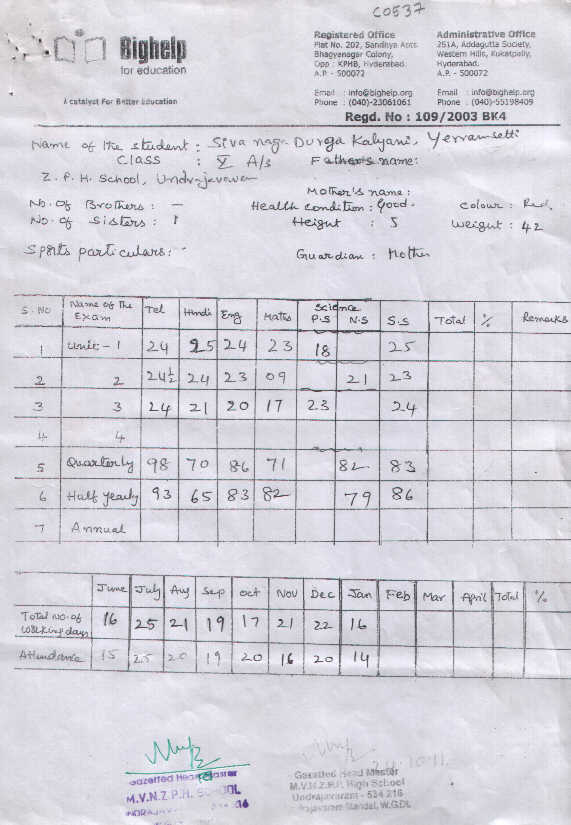 C0537
Bighelp
for education
A catalyst For Better Education
Registered Office
Plat No. 202, Sandhya Apts.
Bhagyanagar Colony,
Opp : KPHB, Hyderabad.
A.P. - 500072
Email : info@bighelp.org
Phone : (040)-23061061
Administrative Office
251A, Addagutta Society,
Western Hills, Kukatpally,
Hyderabad.
A.P. - 500072
Email : info@bighelp.org
Phone : (040)-55198409
Regd. No : 109/2003 BK4
Name of the student : Siva naga Durga Kalyani, Yerramsetti
Class : X A/s Father's name:
Z. P. H. School, Undrajavaram
Mother's name:
No. of Brothers : — Health condition : Good. Colour : Red.
No. of Sisters : 1 Height : 5 Weight : 42
Sports particulars: - Guardian : Mother
S.No Name of the Exam Tel Hindi Eng Maths Science P.S N.S S.S Total % Remarks
1 Unit - 1 24 25 24 23 18 25
2 2 24½ 24 23 09 21 23
3 3 24 21 20 17 23 24
4 4
5 Quarterly 98 70 86 71 82 83
6 Half yearly 93 65 83 82 79 86
7 Annual
June July Aug Sep Oct Nov Dec Jan Feb Mar April Total %
Total No. of working days 16 25 21 19 17 21 22 16
Attendance 15 25 20 19 20 16 20 14
Gazetted Head Master
M.V.N.Z.P.H. SCHOOL
Gazetted Head Master
M.V.N.Z.P.P. High School
Undrajavaram - 534 216
Mandal, W.G.Dt.